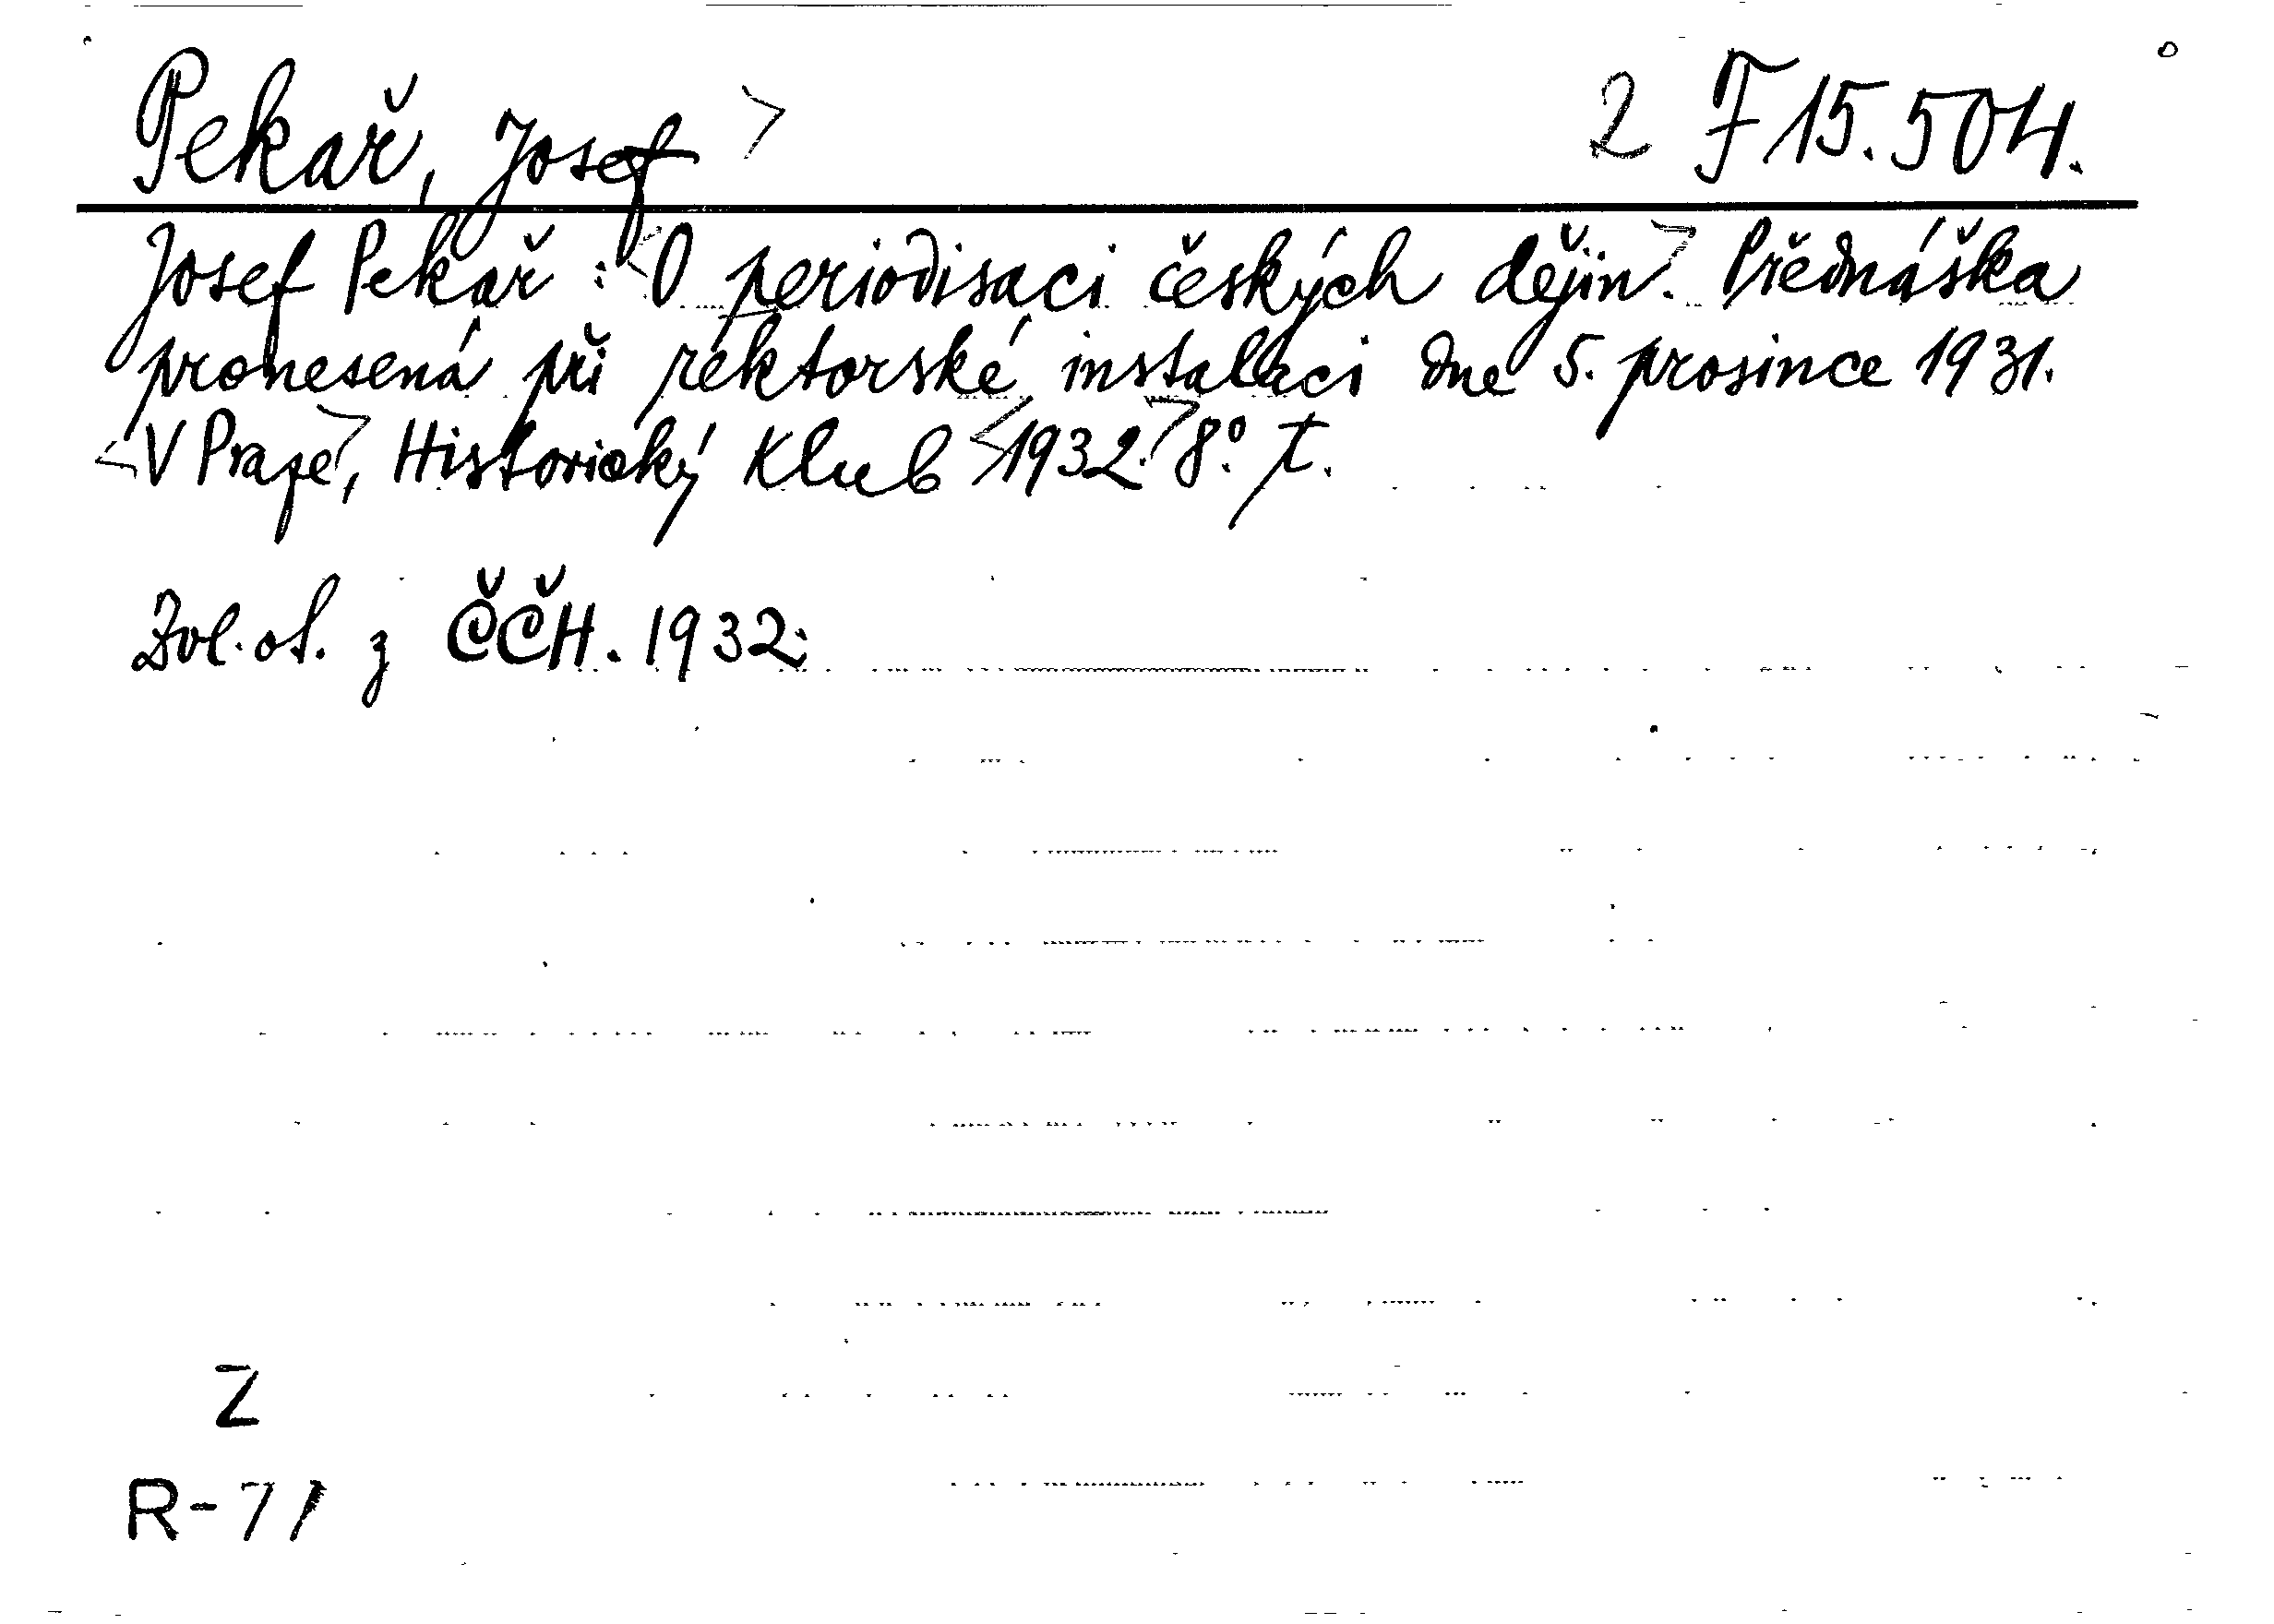 Pekař, Josef > 2 F 15.504.
Josef Pekař : <O periodisaci českých dějin.> Přednáška
pronesená při rektorské instalaci dne 5. prosince 1931.
<V Praze>, Historický Klub <1932.> 8°. t.
Zvl. ot. z ČČH. 1932.
Z
R-71